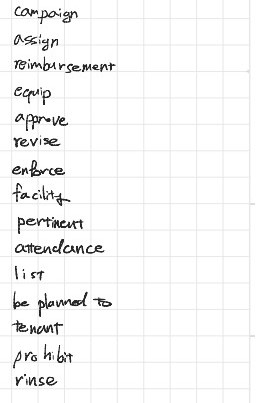 campaign
assign
reimbursement
equip
approve
revise
enforce
facility
pertinent
attendance
list
be planned to
tenant
prohibit
rinse